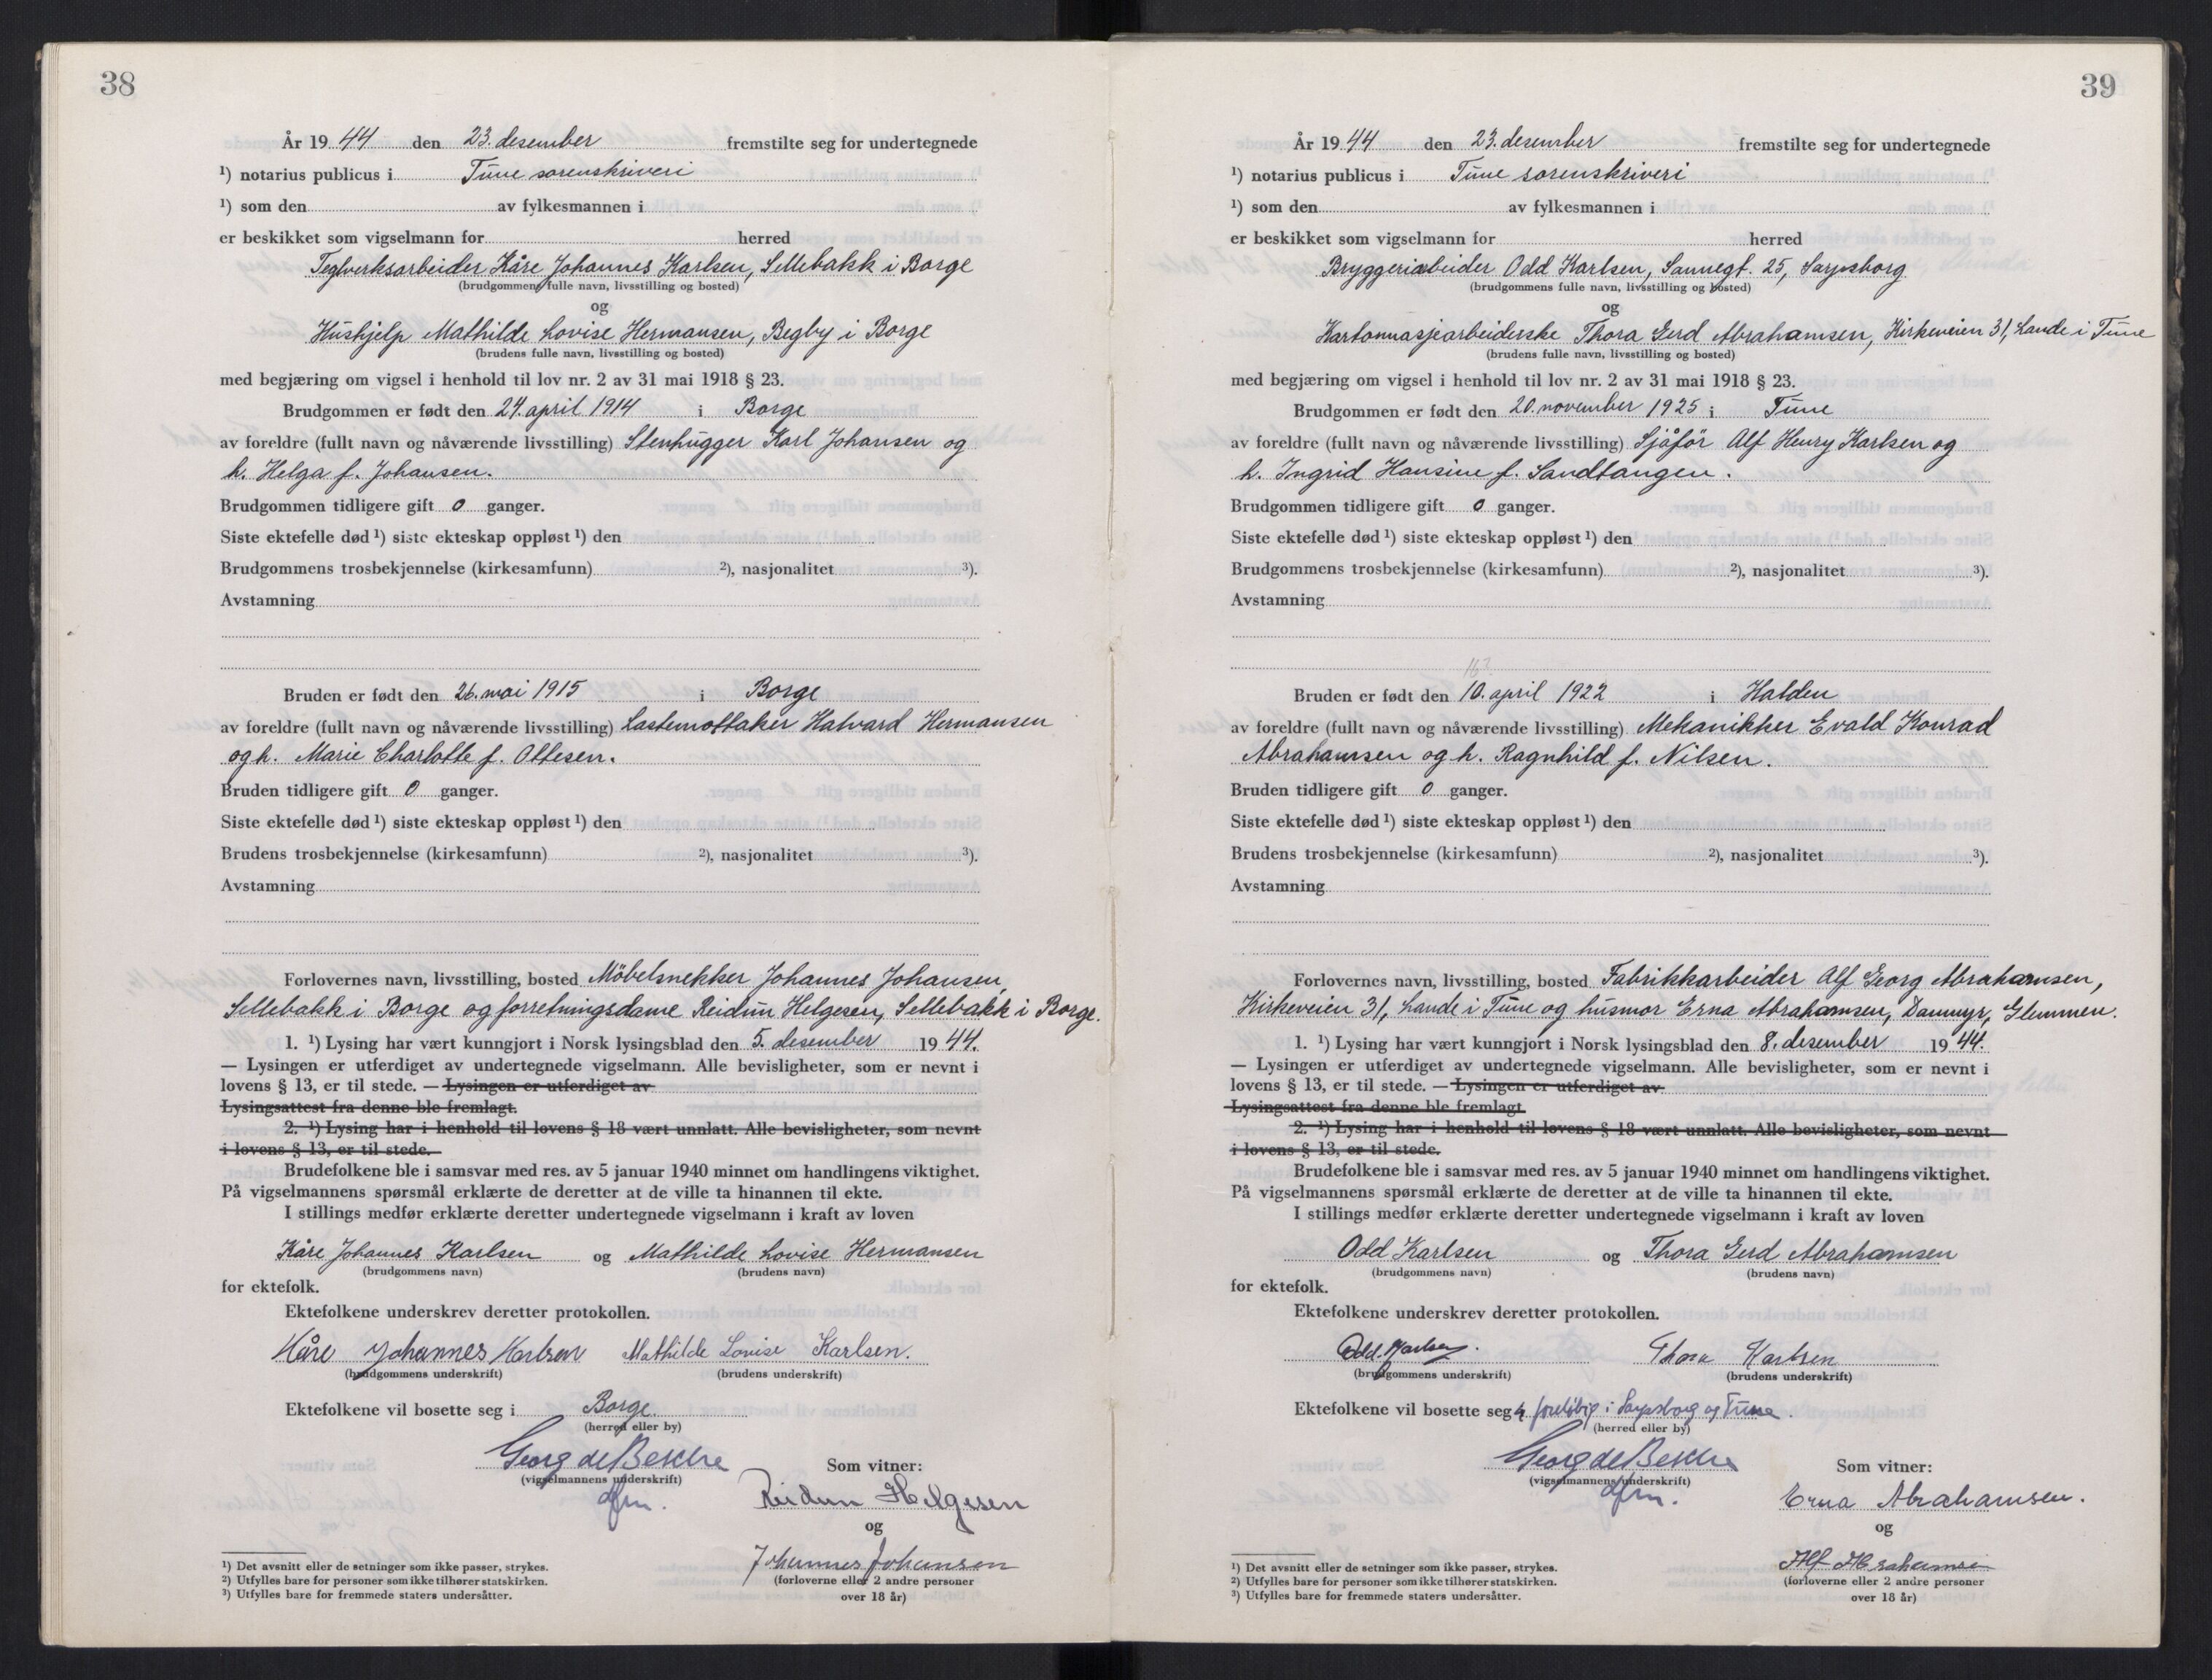 38
År 1944 den 23. desember fremstilte seg for undertegnede
¹) notarius publicus i Tune sorenskriveri
¹) som den av fylkesmannen i
er beskikket som vigselmann for herred
Teglverksarbeider Kåre Johannes Karlsen, Sellebakk i Borge
(brudgommens fulle navn, livsstilling og bosted)
og
Hushjelp Mathilde Lovise Hermansen, Begby i Borge
(brudens fulle navn, livsstilling og bosted)
med begjæring om vigsel i henhold til lov nr. 2 av 31 mai 1918 § 23.
Brudgommen er født den 24. april 1914 i Borge
av foreldre (fullt navn og nåværende livsstilling) Stenhugger Karl Johansen og
h. Helga f. Johansen.
Brudgommen tidligere gift 0 ganger.
Siste ektefelle død ¹) siste ekteskap oppløst ¹) den
Brudgommens trosbekjennelse (kirkesamfunn) ²), nasjonalitet ³).
Avstamning
Bruden er født den 26. mai 1915 i Borge
av foreldre (fullt navn og nåværende livsstilling) Lastemottaker Halvard Hermansen
og h. Marie Charlotte f. Ottesen.
Bruden tidligere gift 0 ganger.
Siste ektefelle død ¹) siste ekteskap oppløst ¹) den
Brudens trosbekjennelse (kirkesamfunn) ²), nasjonalitet ³).
Avstamning
Forlovernes navn, livsstilling, bosted Möbelsnekker Johannes Johansen,
Sellebakk i Borge og forretningsdame Reidun Helgesen, Sellebakk i Borge.
1. ¹) Lysing har vært kunngjort i Norsk lysingsblad den 5. desember 1944.
— Lysingen er utferdiget av undertegnede vigselmann. Alle bevisligheter, som er nevnt i
lovens § 13, er til stede. — Lysingen er utferdiget av
Lysingsattest fra denne ble fremlagt.
2. ¹) Lysing har i henhold til lovens § 18 vært unnlatt. Alle bevisligheter, som nevnt
i lovens § 13, er til stede.
Brudefolkene ble i samsvar med res. av 5 januar 1940 minnet om handlingens viktighet.
På vigselmannens spørsmål erklærte de deretter at de ville ta hinannen til ekte.
I stillings medfør erklærte deretter undertegnede vigselmann i kraft av loven
Kåre Johannes Karlsen og Mathilde Lovise Hermansen
(brudgommens navn) (brudens navn)
for ektefolk.
Ektefolkene underskrev deretter protokollen.
Kåre Johannes Karlsen Mathilde Lovise Karlsen.
(brudgommens underskrift) (brudens underskrift)
Ektefolkene vil bosette seg i Borge.
(herred eller by)
Georg de Besche
(vigselmannens underskrift)
Som vitner:
dfm.
Reidun Helgesen
og
Johannes Johansen
(forloverne eller 2 andre personer
over 18 år)
¹) Det avsnitt eller de setninger som ikke passer, strykes.
²) Utfylles bare for personer som ikke tilhører statskirken.
³) Utfylles bare for fremmede staters undersåtter.
39
År 1944 den 23. desember fremstilte seg for undertegnede
¹) notarius publicus i Tune sorenskriveri
¹) som den av fylkesmannen i
er beskikket som vigselmann for herred
Bryggeriarbeider Odd Karlsen, Sannegt. 25, Sarpsborg
(brudgommens fulle navn, livsstilling og bosted)
og
Kartonnasjearbeiderske Thora Gerd Abrahamsen, Kirkeveien 31, Lande i Tune
(brudens fulle navn, livsstilling og bosted)
med begjæring om vigsel i henhold til lov nr. 2 av 31 mai 1918 § 23.
Brudgommen er født den 20. november 1925 i Tune
av foreldre (fullt navn og nåværende livsstilling) Sjåför Alf Henry Karlsen og
h. Ingrid Hansine f. Sandtangen.
Brudgommen tidligere gift 0 ganger.
Siste ektefelle død ¹) siste ekteskap oppløst ¹) den
Brudgommens trosbekjennelse (kirkesamfunn) ²), nasjonalitet ³).
Avstamning
16?
Bruden er født den 10. april 1922 i Halden
av foreldre (fullt navn og nåværende livsstilling) Mekanikker Evald Konrad
Abrahamsen og h. Ragnhild f. Nilsen.
Bruden tidligere gift 0 ganger.
Siste ektefelle død ¹) siste ekteskap oppløst ¹) den
Brudens trosbekjennelse (kirkesamfunn) ²), nasjonalitet ³).
Avstamning
Forlovernes navn, livsstilling, bosted Fabrikkarbeider Alf Georg Abrahamsen,
Kirkeveien 31, Lande i Tune og husmor Erna Abrahamsen, Dammyr, Glemmen.
1. ¹) Lysing har vært kunngjort i Norsk lysingsblad den 8. desember 1944.
— Lysingen er utferdiget av undertegnede vigselmann. Alle bevisligheter, som er nevnt i
lovens § 13, er til stede. — Lysingen er utferdiget av
Lysingsattest fra denne ble fremlagt
2. ¹) Lysing har i henhold til lovens § 18 vært unnlatt. Alle bevisligheter, som nevnt
i lovens § 13, er til stede.
Brudefolkene ble i samsvar med res. av 5 januar 1940 minnet om handlingens viktighet.
På vigselmannens spørsmål erklærte de deretter at de ville ta hinannen til ekte.
I stillings medfør erklærte deretter undertegnede vigselmann i kraft av loven
Odd Karlsen og Thora Gerd Abrahamsen
(brudgommens navn) (brudens navn)
for ektefolk.
Ektefolkene underskrev deretter protokollen.
Odd Karlsen. Thora Karlsen
(brudgommens underskrift) (brudens underskrift)
Ektefolkene vil bosette seg foreløbig i Sarpsborg og Tune.
(herred eller by)
Georg de Besche
(vigselmannens underskrift)
Som vitner:
dfm.
Erna Abrahamsen.
og
Alf Abrahamsen
(forloverne eller 2 andre personer
over 18 år)
¹) Det avsnitt eller de setninger som ikke passer, strykes.
²) Utfylles bare for personer som ikke tilhører statskirken.
³) Utfylles bare for fremmede staters undersåtter.